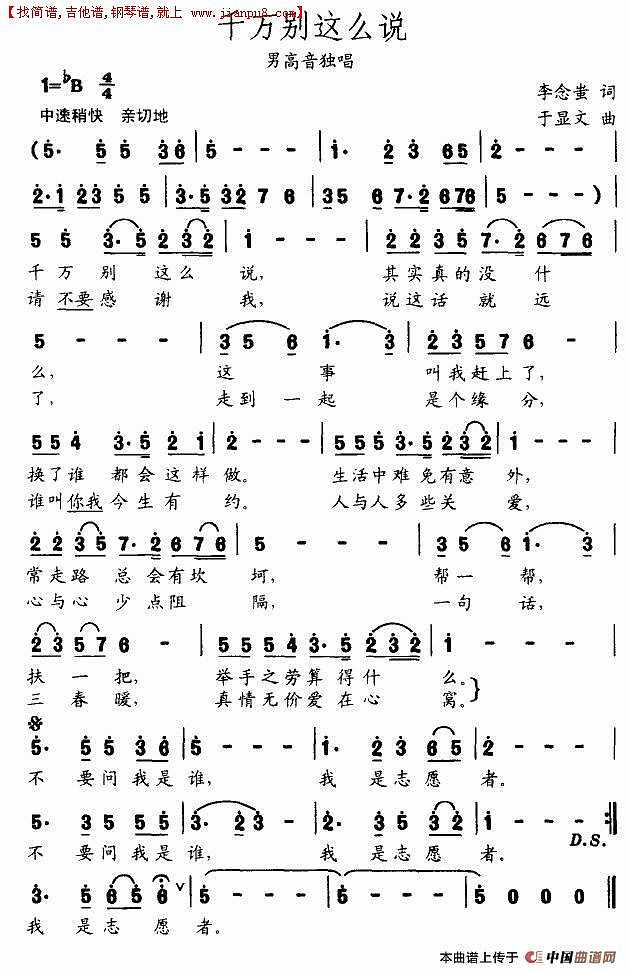 【找简谱,吉他谱,钢琴谱,就上 www.jianpu8.com】
千万别这么说
男高音独唱
1=♭B 4/4
李念蚩 词
中速稍快 亲切地
于显文 曲
(5· 5 5 36 | 5 - - - | 1· 2 3 65 | 2 - - - |
2·1 23 5 5 | 3·5 32 7 6 | 35 6 7·2 676 | 5 - - - )
5 5 3·5 232 | 1 - - - | 22 35 7·2 676 |
千 万 别 这么 说, 其实真的没 什
请 不要 感 谢 我, 说这话 就 远
5 - - - | 35 6 1· 3 | 23 57 6 - |
么, 这 事 叫我赶上了,
了, 走到 一 起 是个缘 分,
55 4 3·5 2 1 | 2 - - - | 555 3·5 232 | 1 - - - |
换了谁 都会这样 做。 生活中难免有意 外,
谁叫你我今生有 约。 人与人多些关 爱,
22 35 7·2 676 | 5 - - - | 35 6 1· 3 |
常走路 总 会有坎 坷, 帮一 帮,
心与心 少 点阻 隔, 一句 话,
23 57 6 - | 5554 3·5 232 | 1 - - - |
扶 一 把, 举手之劳算 得什 么。
三 春 暖, 真情无价爱 在心 窝。
5· 5 5 36 | 5 - - - | 1· 2 3 65 | 5 - - - |
不 要问我是谁, 我 是志愿 者。
5· 35 55 | 3· 23 - | 5· 6 2 32 | 1 - - - :|
D.S.
不 要问我是谁, 我 是志愿 者。
3· 2 3 56 6 ∨ | 5 - - - | 5 - - - | 5 0 0 0 ||
我 是志愿 者。
本曲谱上传于 中国曲谱网